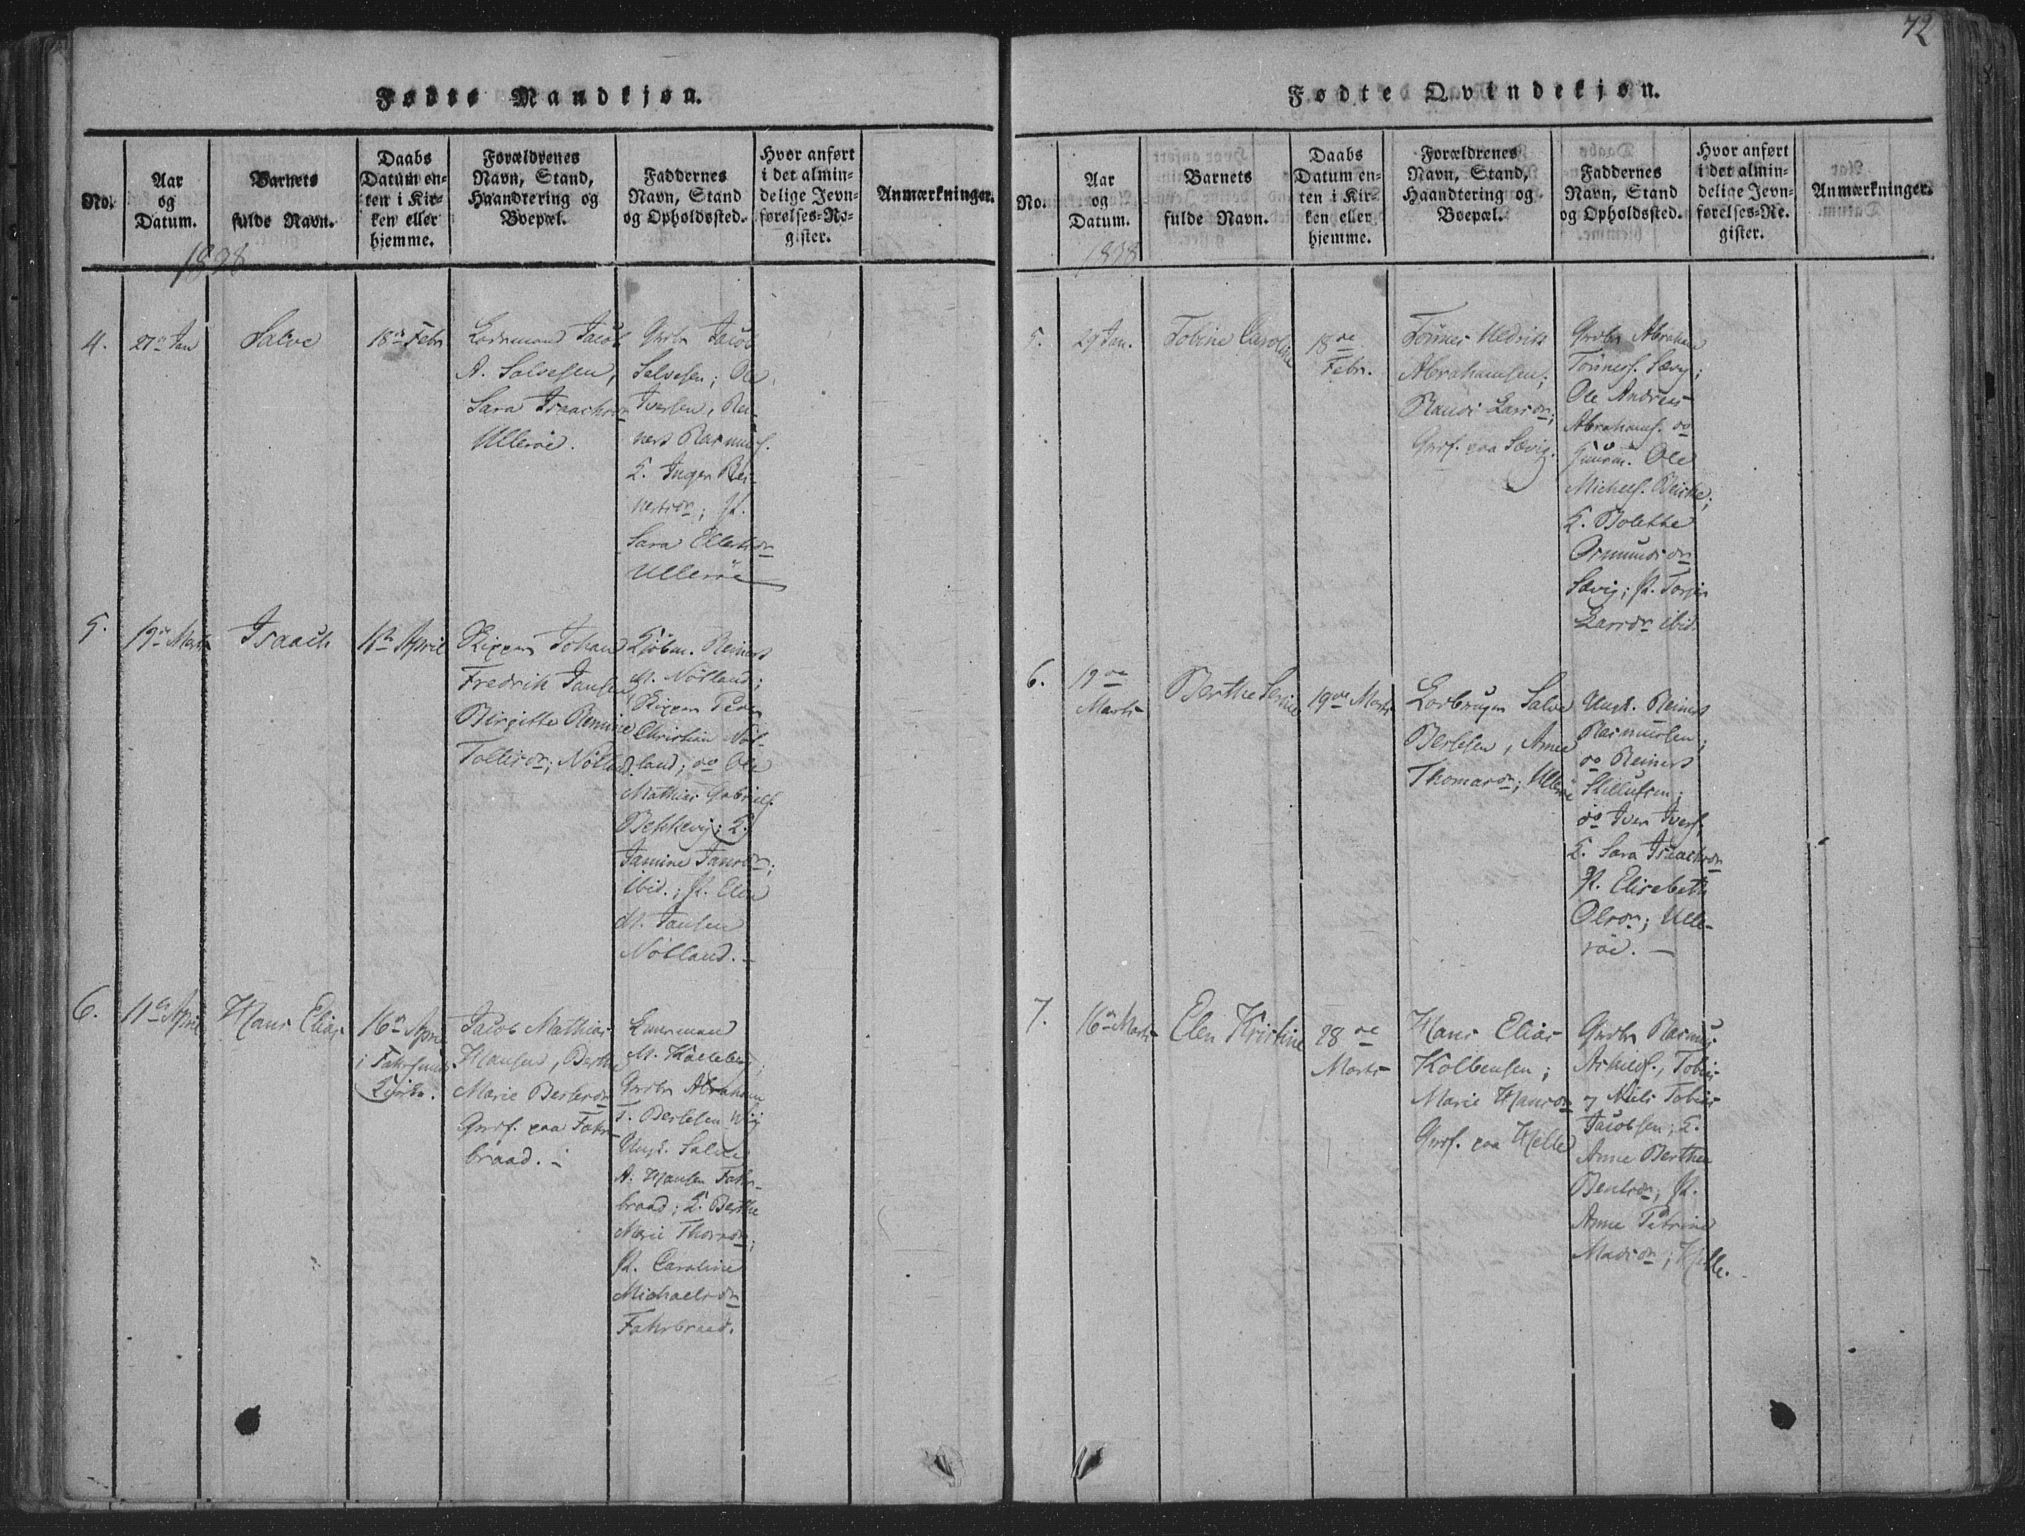 72
Fødte Mandkjøn.
No.
Aar
og
Datum.
Barnets
fulde Navn.
Daabs
Datum en-
ten i Kir-
ken eller
hjemme.
Forældrenes
Navn, Stand,
Haandtering og
Boepæl.
Faddernes
Navn, Stand
og Opholdssted.
Hvor anført
i det almin-
delige Jevn-
førelses-Re-
gister.
Anmærkninger.
1838
4.
27de Jan
Salve
18de Febr
Lodsmand Jacob
A. Salvesen,
Sara Isaachsdr
Ullerøe.
Gmdbr Jacob
Salvesen; Ole
Iversen, Rei-
nert Rasmuss.
Q. Inger Rei-
nertsdr; P.
Sara Ellertsdr
Ullerøe
5.
19de Marts
Isaach
16de April
Skipper Johan
Fredrik Jansen
Birgitte Remine
Tollisdr; Nølland.
Kjøbm. Reinert
M. Nølland;
Skipper Peder
Christian Nøl-
land; do Ole
Mathias Gabriels.
Bekkevig; Q.
Janine Jansdr;
ibid.; P. Elen
M. Jansen
Nølland.
6.
11de April
Hans Elias
16de April
i Fahrsunds
Kirke.
Jacob Mathias
Hansen, Berthe
Marie Berlesdr
Gmdf. paa Fahr-
braad.
M. Kolleberg;
Gmdbr Abraham
T. Berlesen
Ungk. Salve
A. Hansen Fahr-
braad; Q. Berthe
Marie Thorsdr;
P. Caroline
Michaelsdr
Fahrbraad.
Fødte Qvindekjøn.
No.
Aar
og
Datum.
Barnets
fulde Navn.
Daabs
Datum en-
ten i Kir-
ken eller
hjemme.
Forældrenes
Navn, Stand,
Haandtering og
Boepæl.
Faddernes
Navn, Stand
og Opholdssted.
Hvor anført
i det almin-
delige Jevn-
førelses-Re-
gister.
Anmærkninger.
1838
5.
29 Jan.
Tobine Caroline
18de
Febr.
Tønnes Uldriks
Abrahamsen;
Randi Larsdr;
Gmdf. paa Sævig.
Gmdbr Abraham
Tønness. Sævig;
Ole Andreas
Abrahams. do
Ole
Michels.
Q. Bolette
Osmundsdr
Sævig; P.
Larsdr ibid.
6.
19de
Marts
Berthe Serine
19de Marts
Losbruger Salve
Berlesen, Anne
Thomasdr; Ullerøe
Ungk. Reinert
Rasmussen;
do Reinert
do Iver Ivers.
Q. Sara Isaachsdr
P. Elisabeth
Olsdr; Ulle-
røe.
7.
16de Marts
Elen Kristine
28de
Marts
Hans Elias
Kolbensen;
Marie Hansdr
Gmdf. paa Helle
Gmdbr Rasmus
Askilds., Tobias
og Niels Tobias
Jacobsen; Q.
Anne Berthe
Bentsdr; P.
Anne Petrine
Madsdr; Helle.